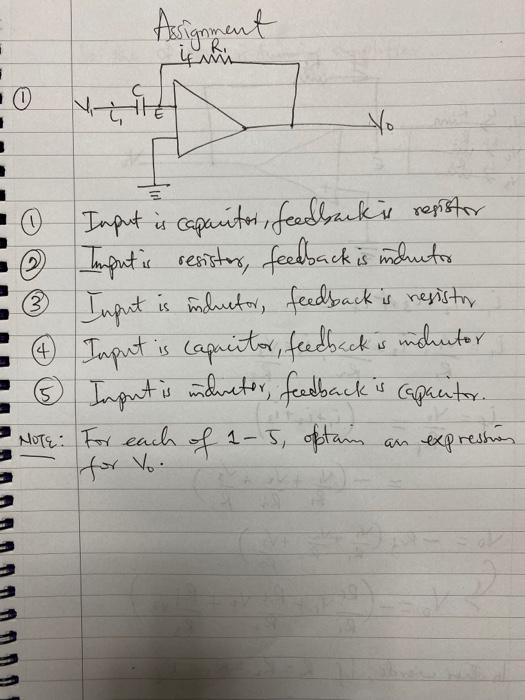 Assignment
if R₁
①
V₁ i₁ C E
V₀
① Input is capacitor, feedback is resistor
② Input is resistor, feedback is inductor
③ Input is inductor, feedback is resistor
④ Input is capacitor, feedback is inductor
⑤ Input is inductor, feedback is capacitor.
NOTE: For each of 1-5, obtain an expression
for V₀.